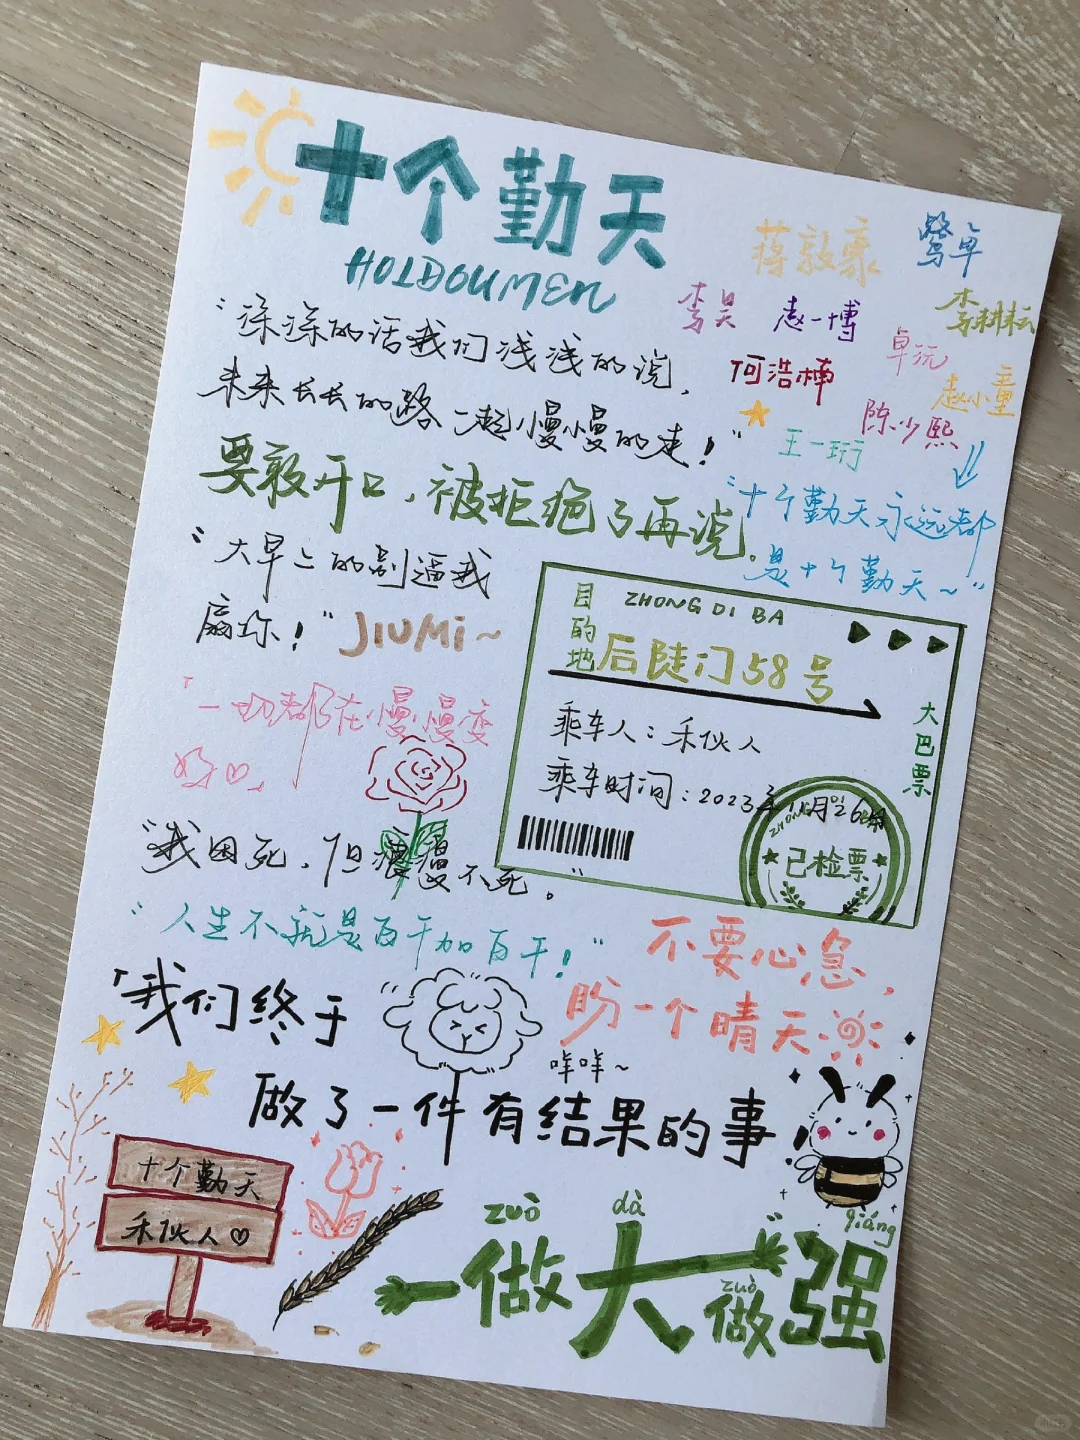 十个勤天
HOLDOUMEN
蒋敦豪
鹭卓
李昊
赵一博
李耕耘
何浩楠
卓沅
赵小童
陈少熙
王一珩
"深深的话我们浅浅的说,
未来长长的路一起慢慢的走!"
要敢开口,被拒绝了再说。
"十个勤天永远都
是十个勤天~"
"大早上的别逼我
扇你!"
JIUMi~
「一切都在慢慢变
好♡」
目的地
ZHONG DI BA
后陡门58号
乘车人:禾伙人
乘车时间:2023年11月26
大巴票
已检票
"我困死,但
不死。"
"人生不就是百干加百干!"
不要心急,
盼一个晴天
「我们终于
咩咩~
做了一件有结果的事!
十个勤天
禾伙人♡
zuò dà zuò qiáng
做大做强